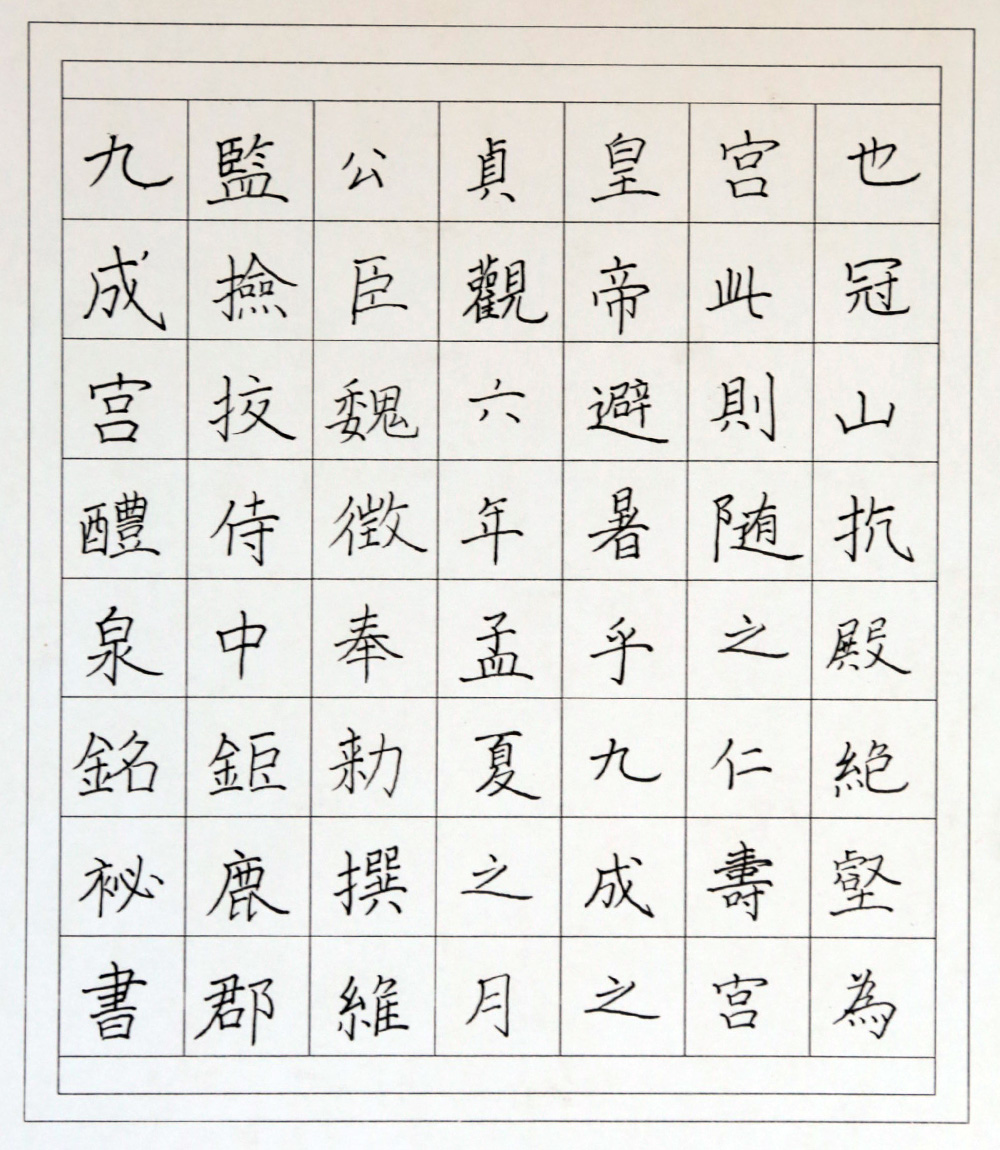 九成宫醴泉銘祕書
監撿挍侍中鉅鹿郡
公臣魏徵奉勑撰維
貞觀六年孟夏之月
皇帝避暑乎九成之
宫此則随之仁壽宫
也冠山抗殿絶壑為